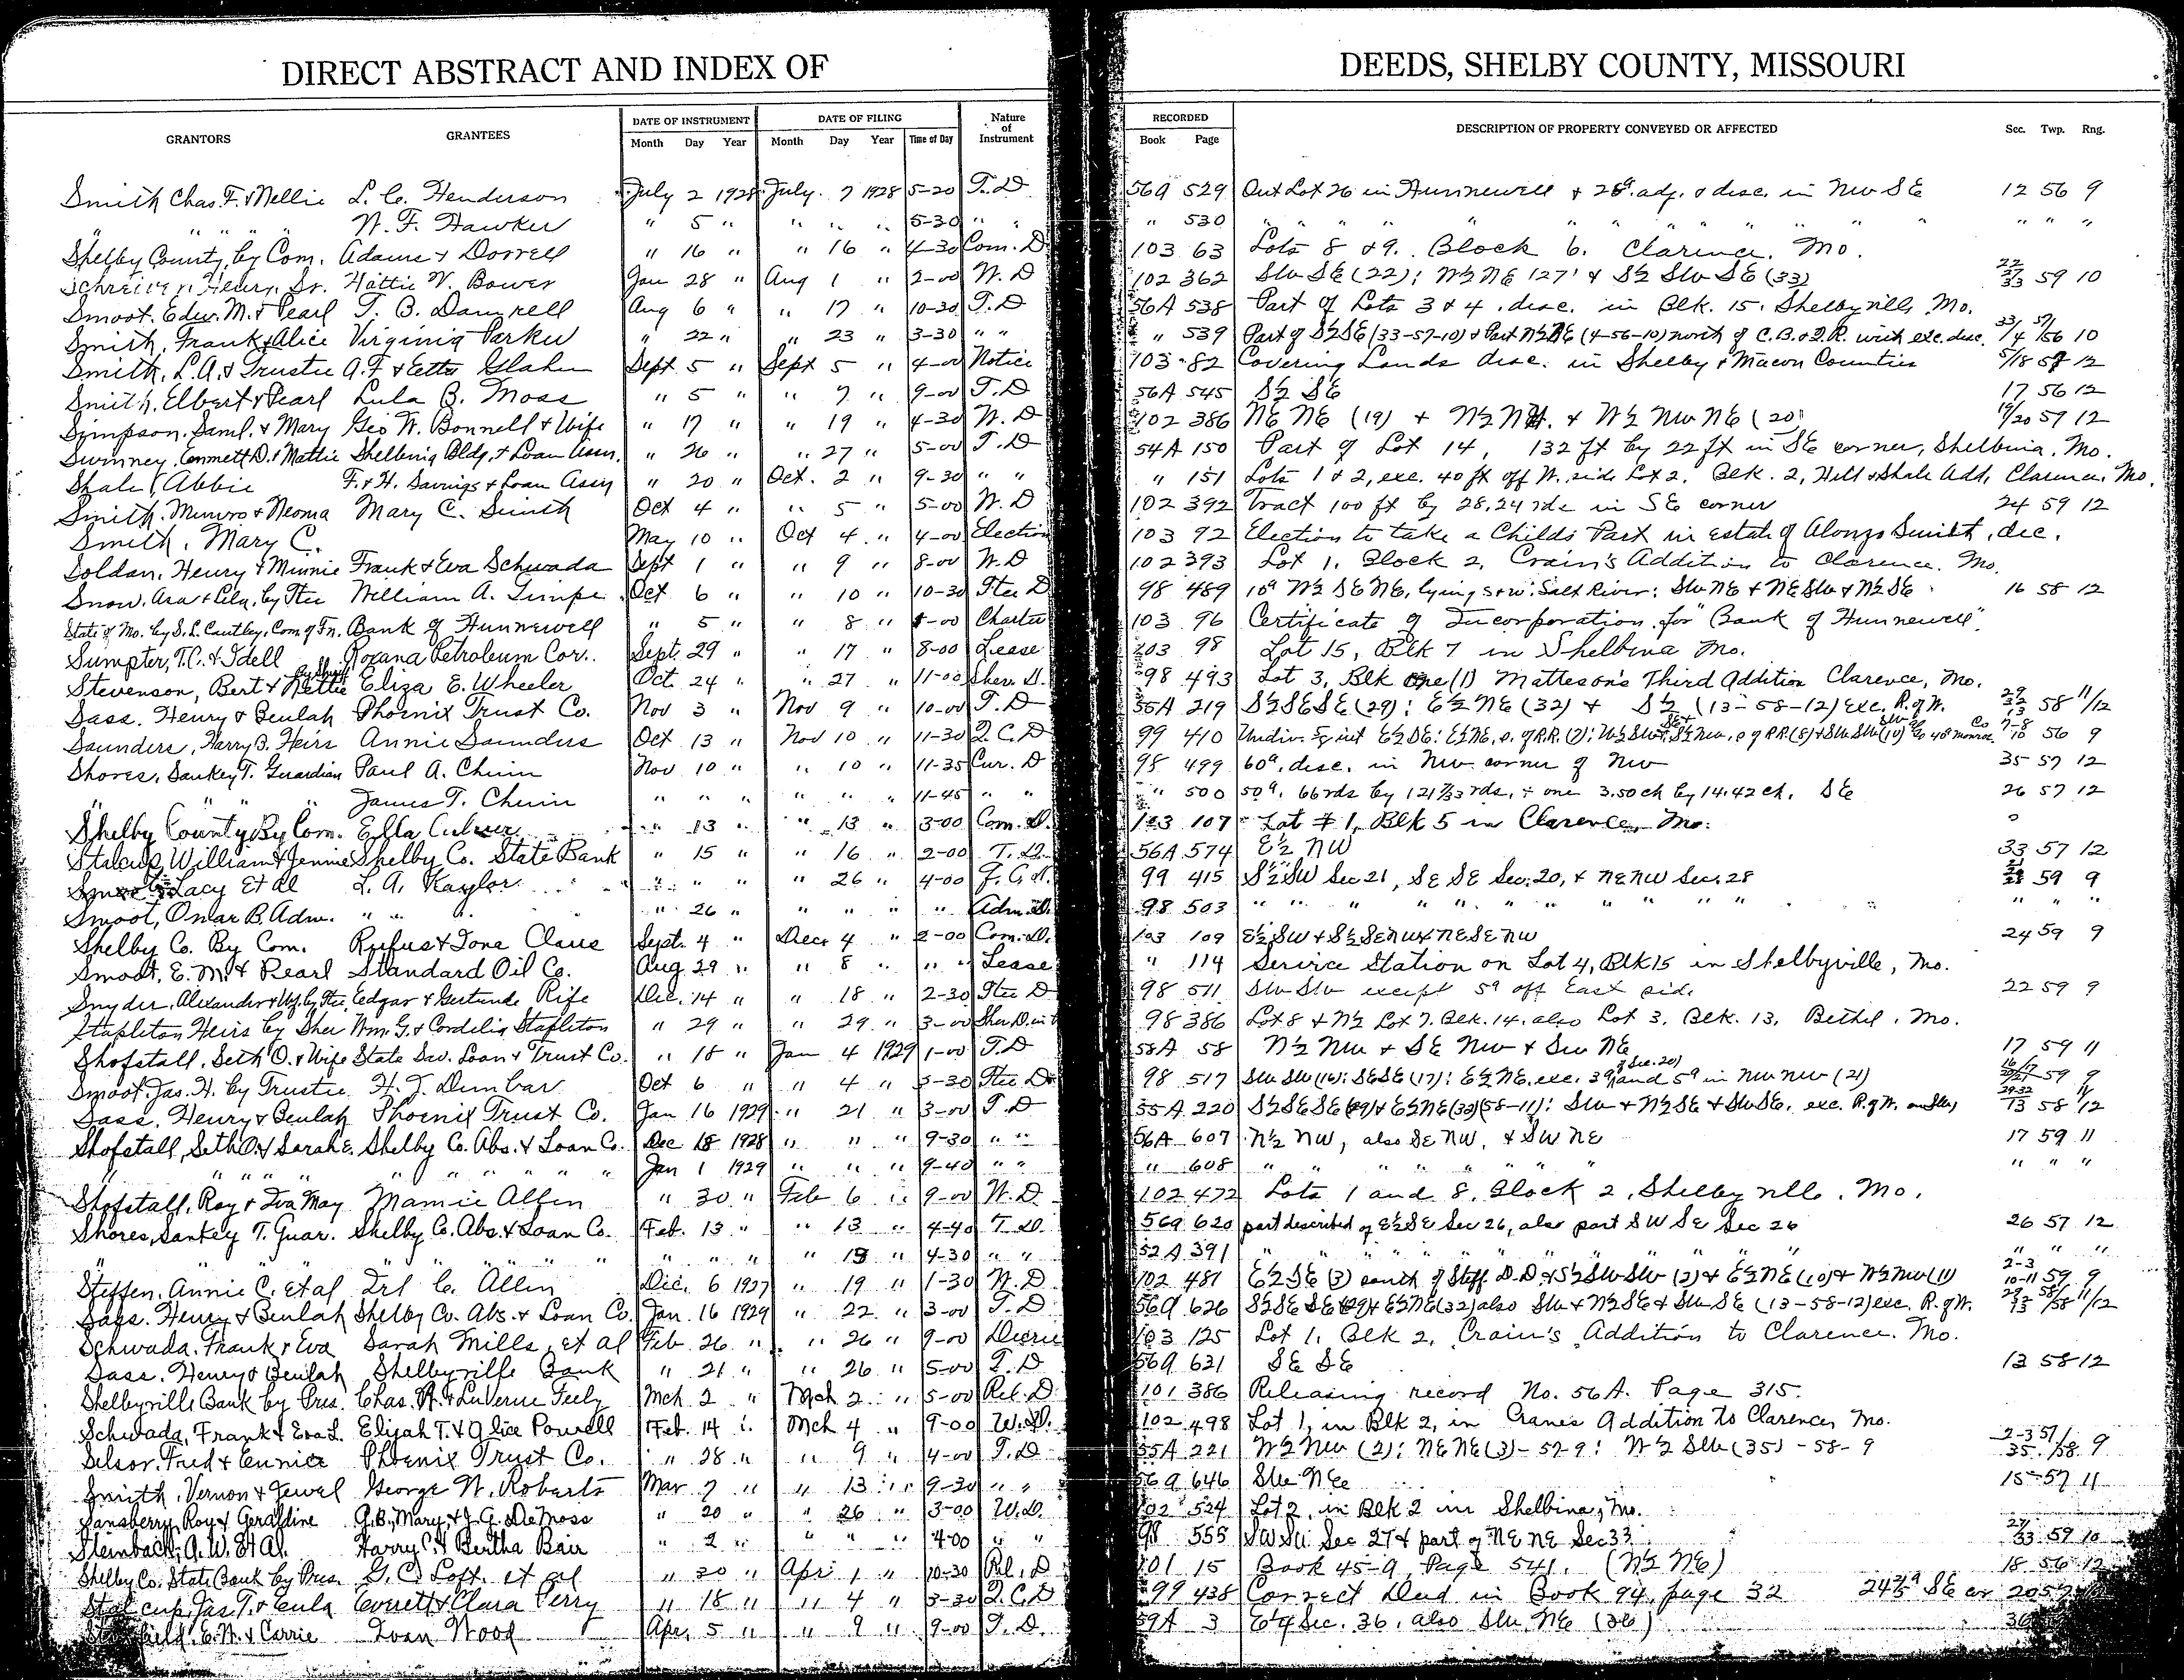 DIRECT ABSTRACT AND INDEX OF DEEDS, SHELBY COUNTY, MISSOURI
GRANTORS GRANTEES DATE OF INSTRUMENT DATE OF FILING Nature of Instrument RECORDED DESCRIPTION OF PROPERTY CONVEYED OR AFFECTED Sec. Twp. Rng.
Month Day Year Month Day Year Time of Day Book Page
Smith Chas. F. & Nellie L. C. Henderson July 2 1928 July 7 1928 5-20 T. D 56A 529 Out Lot 26 in Hunnewell & 28a. adj. & desc. in NW SE 12 56 9
" " " " W. F. Hawker " 5 " " " " 5-30 " " " 530 " " " " " " " " " " " "
Shelby County, by Com. Adams & Dorrell " 16 " " 16 " 4-30 Com. D 103 63 Lots 8 & 9. Block 6. Clarence, Mo.
Schreiver, Henry, Sr. Hattie V. Bower Jan 28 " Aug 1 " 2-00 W. D 102 362 SW SE (22): W½ NE 127' & S½ SW SE (33) 22/33 59 10
Smoot. Edw. M. & Pearl T. B. Damrell Aug 6 " " 17 " 10-30 T. D 56A 538 Part of Lots 3 & 4. desc. in Blk. 15. Shelbyville, Mo.
Smith, Frank & Alice Virginia Parker " 22 " " 23 " 3-30 " " " 539 Part of S½SE (33-57-10) & Part N½NE (4-56-10) north of C.B.&Q.R. with exc. desc. 33/4 57/56 10
Smith, L.A. & Trustee A.F & Etta Glahn Sept 5 " Sept 5 " 4-00 Notice 103-82 Covering Lands desc. in Shelby & Macon Counties 5/18 57 12
Smith, Elbert & Pearl Lula B. Moss " 5 " " 7 " 9-00 T. D 56A 545 S½ SE 17 56 12
Simpson. Saml. & Mary Geo W. Bonnell & Wife " 17 " " 19 " 4-30 W. D 102 386 NE NE (19) + & W½ NW NE (20) 19/20 57 12
Swinney. Emmett D. & Mattie Shelbina Bldg. & Loan Assn. " 26 " " 27 " 5-00 T. D 54A 150 Part of Lot 14, 132 ft by 22 ft in SE corner, Shelbina, Mo.
Shale, Abbie F. & H. Savings & Loan Assn " 20 " Oct. 2 " 9-30 " " " 151 Lots 1 & 2, exc. 40 ft off W. side Lot 2. Blk. 2, Hill & Shale Add, Clarence, Mo.
Smith. Munro & Neoma Mary C. Smith Oct 4 " " 5 " 5-00 W. D 102 392 Tract 100 ft by 28.24 rds in SE corner 24 59 12
Smith, Mary C. May 10 " Oct 4 " 4-00 Election 103 92 Election to take a Childs Part in estate of Alonzo Smith, dec.
Soldan, Henry & Minnie Frank & Eva Schwada Sept 1 " " 9 " 8-00 W. D 102 393 Lot 1. Block 2, Crain's Addition to Clarence. Mo.
Snow. Asa & Lila, by Ttee William A. Timpe Oct 6 " " 10 " 10-30 Ttee D 98 489 10a W½ SE NE, lying s & w. Salt River: SW NE & NE SW & W½ SE 16 58 12
State of Mo. by S. L. Cantley. Com of Fn. Bank of Hunnewell " 5 " " 8 " -00 Charter 103 96 Certificate of Incorporation for "Bank of Hunnewell"
Sumpter, T.C. & Idell Roxana Petroleum Cor. Sept. 29 " " 17 " 8-00 Lease 103 98 Lot 15, Blk 7 in Shelbina Mo.
Stevenson, Bert & Nettie by Sheriff Eliza E. Wheeler Oct. 24 " " 27 " 11-00 Sher. D. 98 493 Lot 3, Blk One (1) Matteson's Third Addition Clarence, Mo.
Sass. Henry & Beulah Phoenix Trust Co. Nov 3 " Nov 9 " 10-00 T. D 55A 219 S½SESE (29): E½ NE (32) & S½ (13-58-12) exc. R. of W. 29/32/13 58 11/12
Saunders, Harry B. Heirs Annie Saunders Oct 13 " Nov 10 " 11-30 Q. C. D 99 410 Undiv. int E½SE: E½NE, s. of R.R. (7): W½SW, S½NW, s of RR (8) & SW SW (10) 7-8/10 56 9
Shores, Sankey T. Guardian Paul A. Chinn Nov 10 " " 10 " 11-35 Cur. D 98 499 60a, desc. in NW corner of NW 35 57 12
" " " James T. Chinn " " " " " " 11-45 " " " 500 50a. 66 rds by 121 7/33 rds, & one 3.50 ch by 14.42 ch. SE 26 57 12
Shelby County By Com. Ella Culver " 13 " " 13 " 3-00 Com. D. 103 107 Lot #1, Blk 5 in Clarence, Mo.
Stalcup, William & Jennie Shelby Co. State Bank " 15 " " 16 " 2-00 T. D. 56A 574 E½ NW 33 57 12
Lacy Et al L. A. Kaylor " " " " 26 " 4-00 99 415 S½SW Sec 21, SE SE Sec. 20, & NE NW Sec. 28 59 9
Smoot, Omar B. Adm. " " " " 26 " " " " " Adm. D. 98 503 " " " " " " " " " " " " "
Shelby Co. By Com. Rufus & Iona Claus Sept. 4 " Dec. 4 " 2-00 Com. D. 103 109 E½ SW & S½ SE NW & NE SE NW 24 59 9
Smoot, E. M. & Pearl Standard Oil Co. Aug. 29 " " 8 " " " Lease " 114 Service Station on Lot 4, Blk 15 in Shelbyville, Mo.
Snyder, Alexander & Wf. by Ttee. Edgar & Gertrude Rife Dec. 14 " " 18 " 2-30 Ttee D 98 511 SW SW except 5a off East side 22 59 9
Stapleton Heirs by Sher Wm. G. & Cordelia Stapleton " 29 " " 29 " 3-00 Sher. D. 98 386 Lot 8 & N½ Lot 7. Blk. 14. also Lot 3. Blk. 13, Bethel, Mo.
Shofstall. Seth O. & Wife State Sav. Loan & Trust Co. " 18 " Jan 4 1929 1-00 T. D 58A 58 N½ NW & SE NW & SW NE 17 59 11
Smoot. Jas. H. by Trustee H. J. Dunbar Oct 6 " " 4 " 3-30 Ttee D 98 517 SW SW (16): SE SE (17): E½ NE. exc. 39a of Sec. 20) and 5a in NW NW (21) 16/17 20/21 59 9
Sass. Henry & Beulah Phoenix Trust Co. Jan 16 1929 " 21 " 3-00 T. D 55A 220 S½SESE (29) & E½NE (32) (58-11): SW & N½SE & SWSE, exc. R. of W. 29-32/13 58 11/12
Shofstall, Seth O. & Sarah E. Shelby Co. Abs. & Loan Co. Dec 18 1928 " " " 9-30 " " 56A 607 N½ NW, also SE NW, & SW NE 17 59 11
" " " " " " " " " " Jan 1 1929 " " " 9-40 " " " 608 " " " " " " " " " "
Shofstall, Roy & Iva May Mamie Alfin " 30 " Feb 6 " 9-00 W. D. 102 472 Lots 1 and 8. Block 2, Shelbyville, Mo.
Shores, Sankey T. Guar. Shelby Co. Abs. & Loan Co. Feb. 13 " " 13 " 4-40 T. D. 56A 620 part described of E½SE Sec 26, also part SW SE Sec 26 26 57 12
" " " " " " " " " " 19 " 4-30 " " 52A 391 " " " " " " " " " "
Steffen. Annie C. et al Irl C. Allen Dec. 6 1927 " 19 " 1-30 W. D 102 481 E½ SE (3) south of Steff. D. D. & S½ SW SW (2) & E½ NE (10) & W½ NW (11) 2-3/10-11 59 9
Sass. Henry & Beulah Shelby Co. Abs. & Loan Co. Jan. 16 1929 " 22 " 3-00 T. D 56A 626 S½SE SE (29) & E½NE (32) also SW & N½SE & SW SE (13-58-12) exc. R. of W. 58 11/12
Schwada. Frank & Eva Sarah Mills, et al Feb 26 " " 26 " 9-00 Decree 103 125 Lot 1. Blk 2, Crain's Addition to Clarence. Mo.
Sass. Henry & Beulah Shelbyville Bank " 21 " " 26 " 5-00 T. D 56A 621 SE SE 13 58 12
Shelbyville Bank by Pres. Chas. R. & LuVerne Feely Mch 2 " Mch 2 " 5-00 Rel. D 101 386 Releasing record No. 56A. Page 315.
Schwada, Frank & Eva L. Elijah T. & Alice Powell Feb. 14 " Mch 4 " 9-00 W. D. 102 498 Lot 1, in Blk 2, in Cranes Addition To Clarence, Mo.
Selsor. Fred & Eunice Phoenix Trust Co. " 28 " " 9 " 4-00 T. D 55A 221 W½ NW (2): NE NE (3)-57-9: W½ SW (35)-58-9 2-3 57/35 58 9
Smith, Vernon & Jewel George W. Roberts Mar 7 " " 13 " 9-30 " " 56A 646 SW NE 15-57 11
Sansberry, Roy & Geraldine A.B., Mary, & J. G. DeMoss " 20 " " 26 " 3-00 W. D. 102 524 Lot 2, in Blk 2 in Shelbina, Mo.
Steinback, A. W. Et Al. Harry C. & Bertha Bair " 2 " " " " 4-00 " " 98 555 SW SW Sec 27 & part of NE NE Sec 33 27/33 59 10
Shelby Co. State Bank by Pres. G. C. Loft. et al " 30 " Apr 1 " 10-30 Rel. D 101 15 Book 45-A Page 541. (N½ NE) 18 56 12
Stalcup, Jas. T. & Eula Everett & Clara Perry " 18 " " 4 " 3-30 Q. C. D 99 438 Correct Deed in Book 94, page 32 SE cor
E. W. & Carrie Ivan Wood Apr. 5 " " 9 " 9-00 T. D. 59A 3 Sec. 36, also SW NE (36) 36